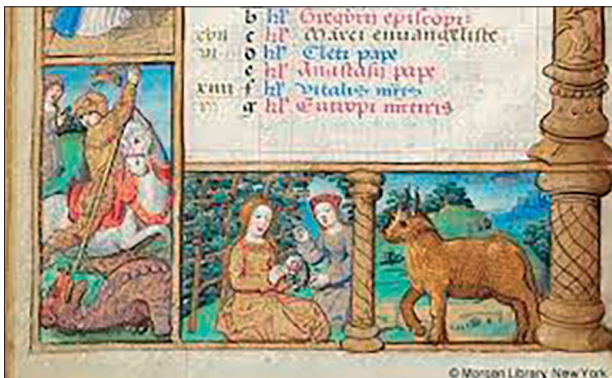 b kl' Gregorii episcopi:
xvii c kl' Marci euuangeliste
vi d kl' Cleti pape
e kl' Anastasii pape
xiiii f kl' Vitalis mr̄is
g kl' Eutropi meteris
© Morgan Library, New York